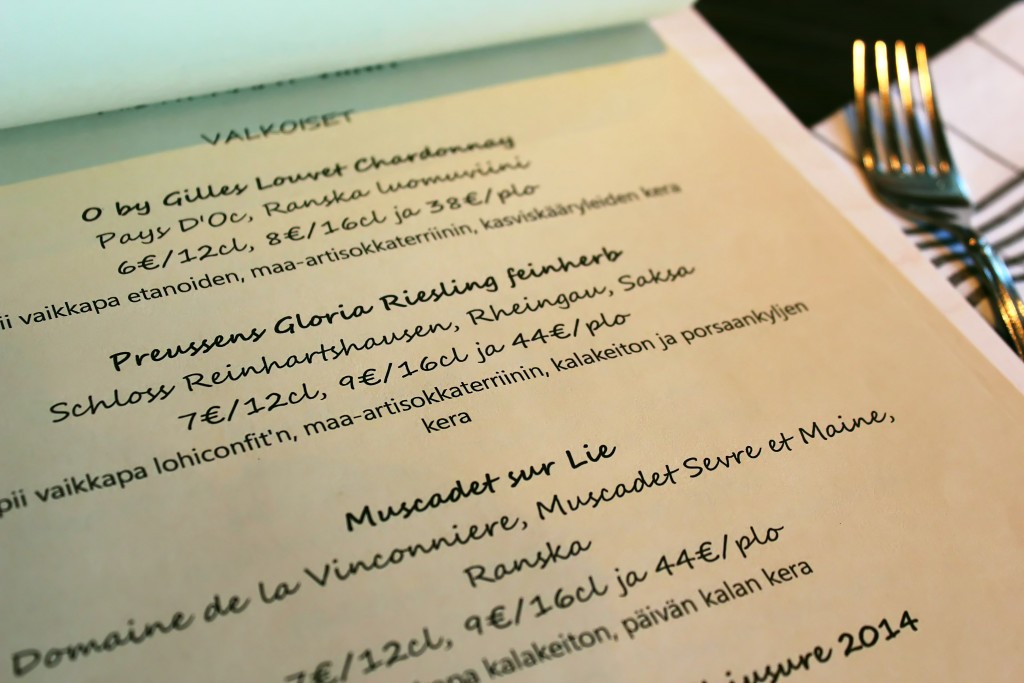 VALKOISET
O by Gilles Louvet Chardonnay
Pays D'Oc, Ranska luomuviini
6€/12cl, 8€/16cl ja 38€/plo
vaikkapa etanoiden, maa-artisokkaterriinin, kasviskääryleiden kera
Preussens Gloria Riesling feinherb
Schloss Reinhartshausen, Rheingau, Saksa
7€/12cl, 9€/16cl ja 44€/plo
vaikkapa lohiconfit'n, maa-artisokkaterriinin, kalakeiton ja porsaankyljen
kera
Muscadet sur Lie
Domaine de la Vinconniere, Muscadet Sevre et Maine,
Ranska
7€/12cl, 9€/16cl ja 44€/plo
kalakeiton, päivän kalan kera
2014